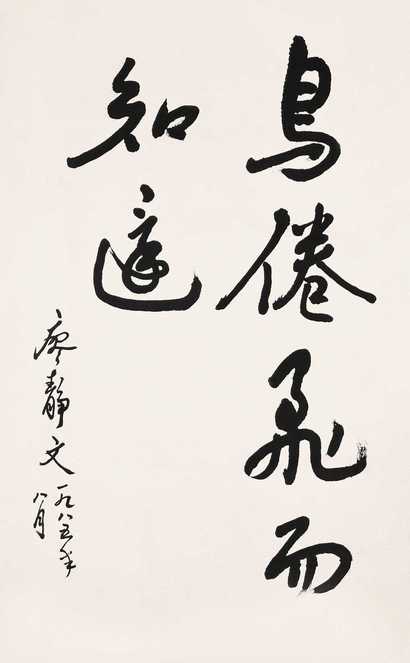 鳥倦飛而
知還
廖靜文一九八五年
八月